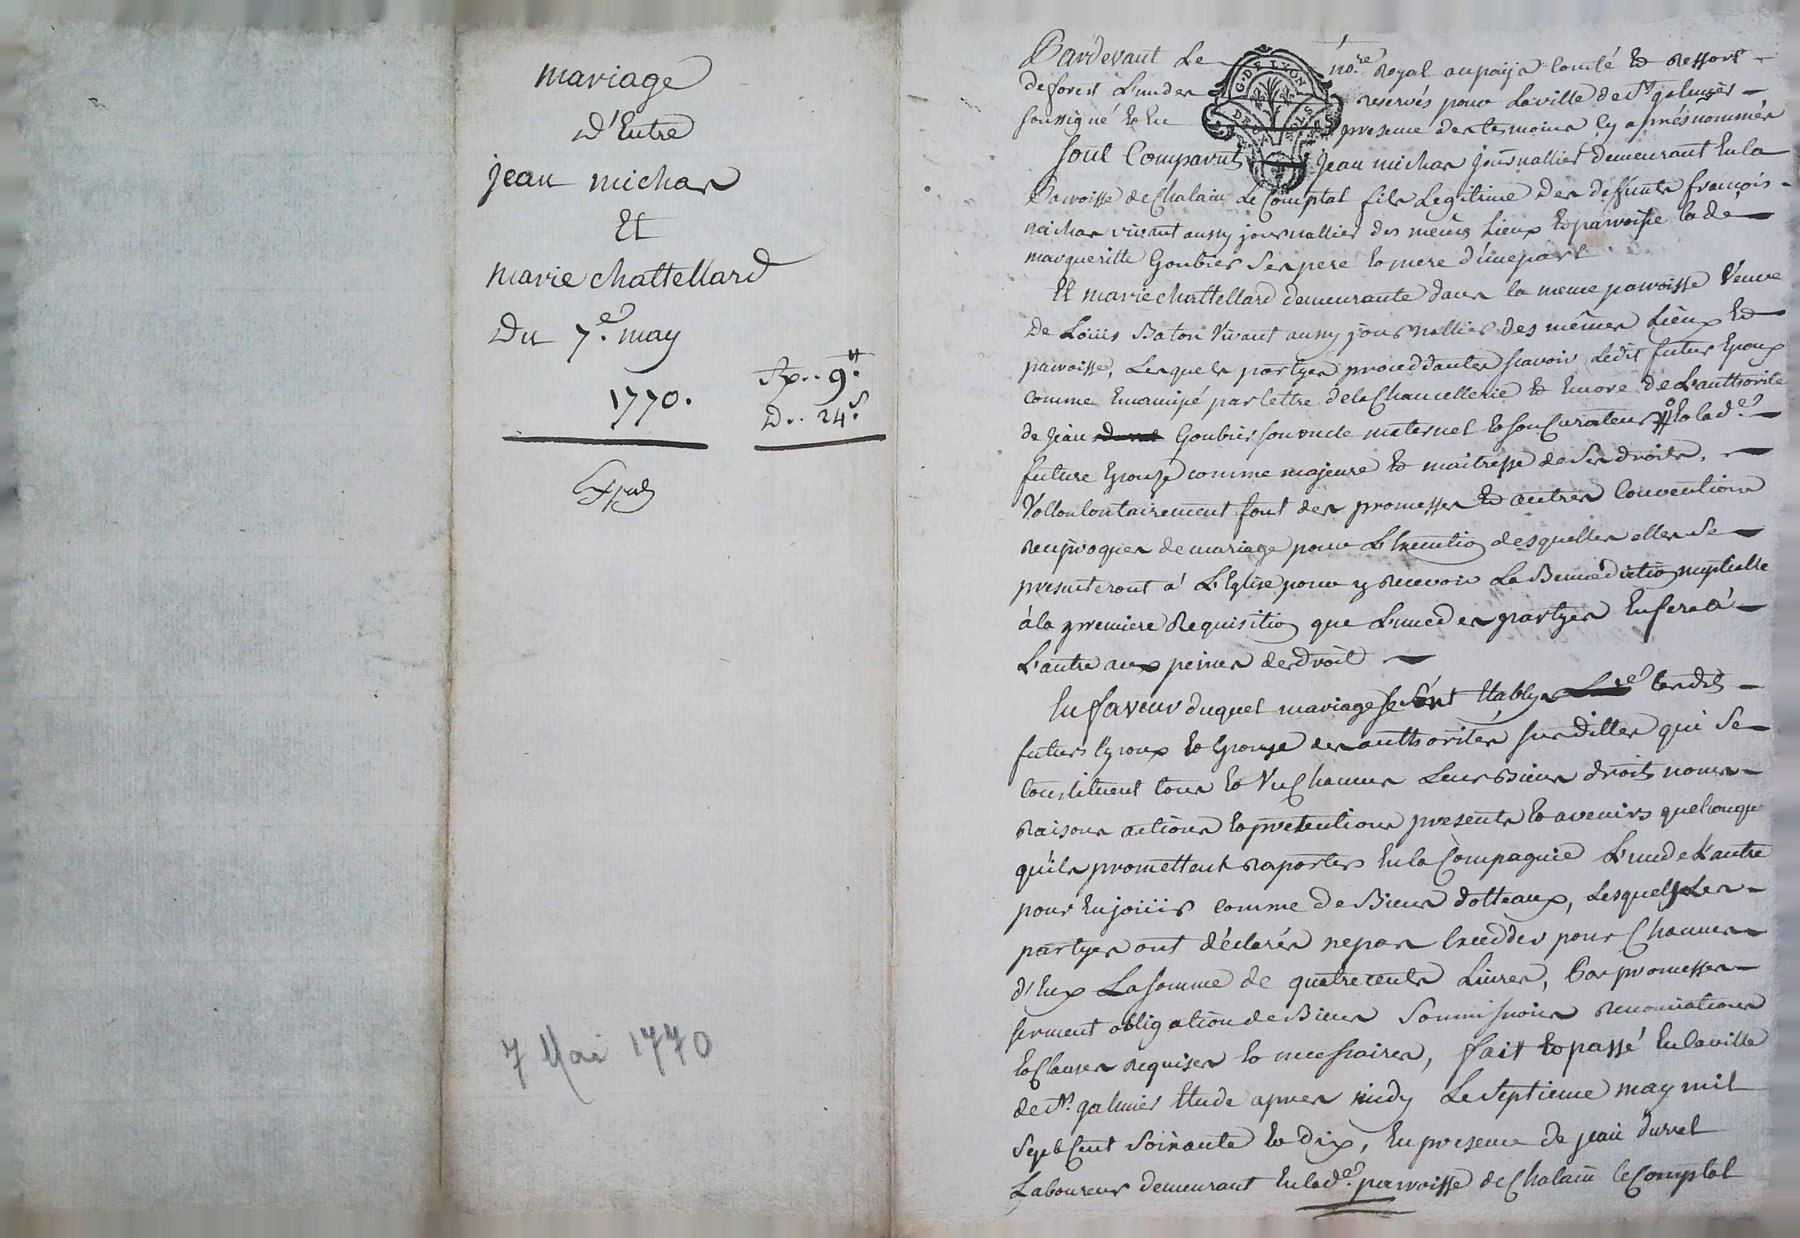 mariage
D'Entre
jean michas
Et
marie chattellard
Du 7.e may
1770.
9.tt
D.. 24.s
Expd
7 Mai 1770
Pardevant Le no.re Royal aupaijs Comté Et Ressort
deforest L'undes reservés pour Laville de st galmier
soussigné Et En presence des temoins Cy aprés nommés
G. DE LYON
sont Comparut jean michas journallier demeurant Enla
Paroisse de Chalain Le Comptal fils Legitime des deffunts françois
michas vivant aussy journallier des mêmes Lieux Et paroisse la de
margueritte Goubier Ses pere Et mere d'une part
Et marie chattellard demeurante dans la meme paroisse Veuve
De Loüis Baton Vivant aussy journallier des mêmes Lieux Et
paroisse, Lesquels partyes proceddantes scavoir Ledit futur Epoux
comme Emancipé par lettre dela Chancellerie Et Encore de L'authorité
de jean Goubier son oncle maternel Et son Curateur Et lad.e
future Epouse comme majeure Et maitresse de Ses droits.
Vollontairement font des promesses Et autres Conventions
reciproques de mariage pour L'Execution desquelles elles Se
presenteront à L'Eglise pour y recevoir La Benediction nuptialle
à la premiere Requisition que L'une des partyes En fera à
L'autre aux peines de droit
En faveur duquel mariage se sont Etablys lesdits
futurs Epoux Et Epouse des authorités susdittes qui Se
Constituent tous Et Un Chacun Leurs Biens droits noms
Raisons actions Et pretentions presents Et avenirs quelconque
qu'ils promettent raporter En la Compagnie L'un de L'autre
pour En joüir comme de Biens dotteaux, Lesquels Les
partyes ont déclarés ne pas Exceddes pour Chacun
d'Eux La somme de quatre cents Livres, Par promesses
serment obligation de Biens Soumissions renonciations
Et Clauses requises Et necessaires, fait Et passé En laville
de st. galmier Etude apres midy Le Septieme may mil
Sept Cent Soixante Et dix, En presence de jean durel
Laboureur demeurant En lad.e paroisse de Chalain le Comptal